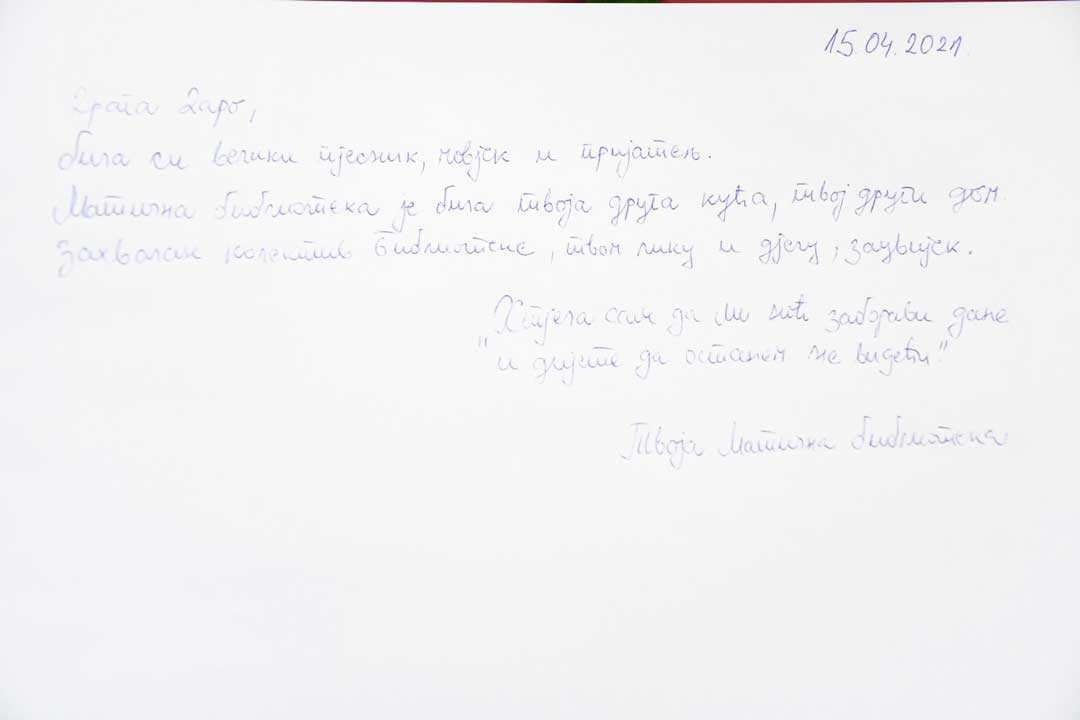 15.04.2021.
Драга Даро,
била си велики пјесник, човјек и пријатељ.
Матична библиотека је била твоја друга кућа, твој други дом.
Захвалан колектив Библиотеке, твом лику и дјелу, заувијек.
Хтјела сам да ми ноћ заборави дане
"и дијете да останем не видећи."
Твоја Матична библиотека